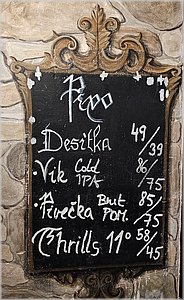 Pivo
Desítka 49/39
• Vik Cold IPA 86/75
• Pivečka Brut PDM. 85/75
C³hrills 11° 58/45